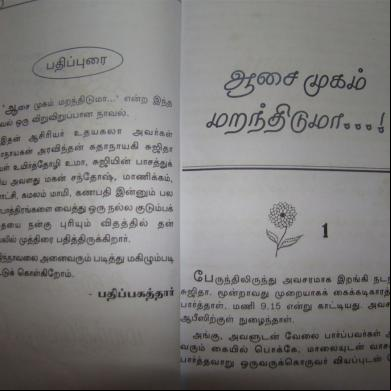 பதிப்புரை
'ஆசை முகம் மறந்திடுமா...' என்ற இந்த
ஒரு விறுவிறுப்பான நாவல்.
இதன் ஆசிரியர் உதயகலா அவர்கள்
அரவிந்தன் கதாநாயகி சுஜிதா
உமா, சுஜியின் பாசத்துக்
அவளது மகன் சந்தோஷ், மாணிக்கம்,
கமலம் மாமி, கணபதி இன்னும் பல
வைத்து ஒரு நல்ல குடும்பக்
நன்கு புரியும் விதத்தில் தன்
முத்திரை பதித்திருக்கிறார்.
அனைவரும் படித்து மகிழும்படி
கொள்கிறோம்.
- பதிப்பகத்தார்
ஆசை முகம்
மறந்திடுமா...!
1
பேருந்திலிருந்து அவசரமாக இறங்கி
சுஜிதா. மூன்றாவது முறையாகக்
பார்த்தாள். மணி 9.15 என்று காட்டியது.
ஆபீஸிற்குள் நுழைந்தாள்.
அங்கு, அவளுடன் வேலை பார்ப்பவர்கள்
வரும் கையில் பொக்கே, மாலையுடன்
பார்த்தவாறு ஒருவருக்கொருவர் வியப்புடன்